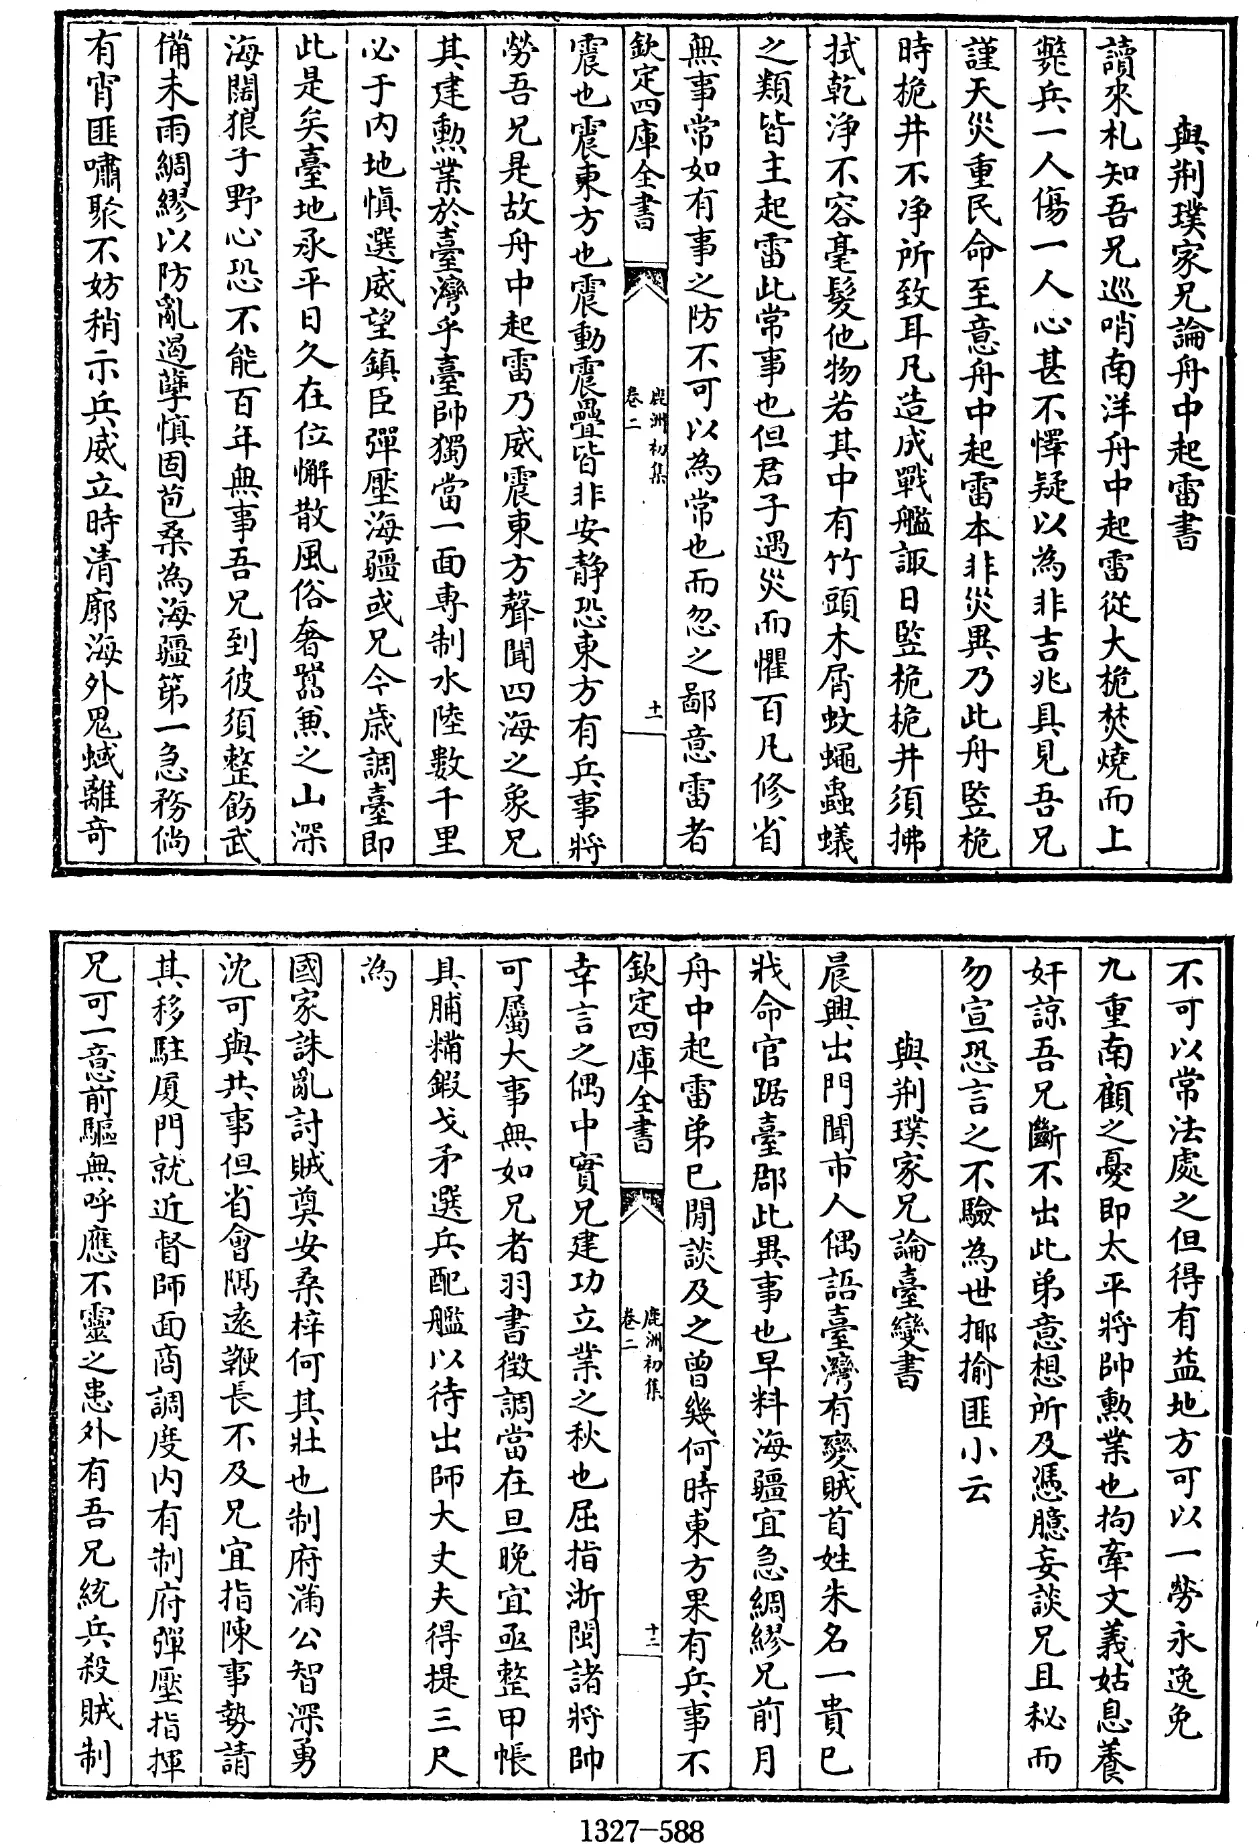 與荆璞家兄論舟中起雷書
讀來札知吾兄巡哨南洋舟中起雷從大桅焚燒而上
斃兵一人傷一人心甚不懌疑以為非吉兆具見吾兄
謹天災重民命至意舟中起雷本非災異乃此舟竪桅
時桅井不净所致耳凡造成戰艦諏日竪桅桅井須拂
拭乾淨不容毫髮他物若其中有竹頭木屑蚊蠅蟲蟻
之類皆主起雷此常事也但君子遇災而懼百凡修省
無事常如有事之防不可以為常也而忽之鄙意雷者
欽定四庫全書
鹿洲初集
卷二
十一
震也震東方也震動震疊皆非安静恐東方有兵事將
勞吾兄是故舟中起雷乃威震東方聲聞四海之象兄
其建勲業於臺灣乎臺帥獨當一面專制水陸數千里
必于内地慎選威望鎮臣彈壓海疆或兄今歳調臺即
此是矣臺地承平日久在位懈散風俗奢嚣兼之山深
海闊狼子野心恐不能百年無事吾兄到彼須整飭武
備未雨綢繆以防亂遏孽慎固苞桑為海疆第一急務倘
有宵匪嘯聚不妨稍示兵威立時清廓海外鬼蜮離奇
不可以常法處之但得有益地方可以一勞永逸免
九重南顧之憂即太平將帥勲業也拘牽文義姑息養
奸諒吾兄斷不出此弟意想所及憑臆妄談兄且秘而
勿宣恐言之不驗為世揶揄匪小云
與荆璞家兄論臺變書
晨興出門聞市人偶語臺灣有變賊首姓朱名一貴已
戕命官踞臺郡此異事也早料海疆宜急綢繆兄前月
舟中起雷弟已閒談及之曾幾何時東方果有兵事不
欽定四庫全書
鹿洲初集
卷二
十二
幸言之偶中實兄建功立業之秋也屈指浙閩諸將帥
可屬大事無如兄者羽書徵調當在旦晩宜亟整甲帳
具脯糒鍜戈矛選兵配艦以待出師大丈夫得提三尺
為
國家誅亂討賊奠安桑梓何其壯也制府滿公智深勇
沈可與共事但省會隔遠鞭長不及兄宜指陳事勢請
其移駐厦門就近督師面商調度内有制府彈壓指揮
兄可一意前驅無呼應不靈之患外有吾兄統兵殺賊制
1327-588